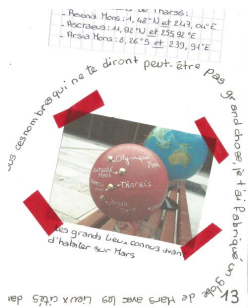 de Tharsis:
- Pavonis Mons: 1,48°N et 247,04°E
- Ascraeus: 11,92°N et 255,92°E
- Arsia Mons: 8,26°S et 239,91°E
ces nombres qui ne te diront peut-être pas grand chose, je t'ai fabriqué un globe de Mars avec les lieux cités dans
Olympus
Mons
Tharsis
Les grands lieux connus avant
d'habiter sur Mars
13